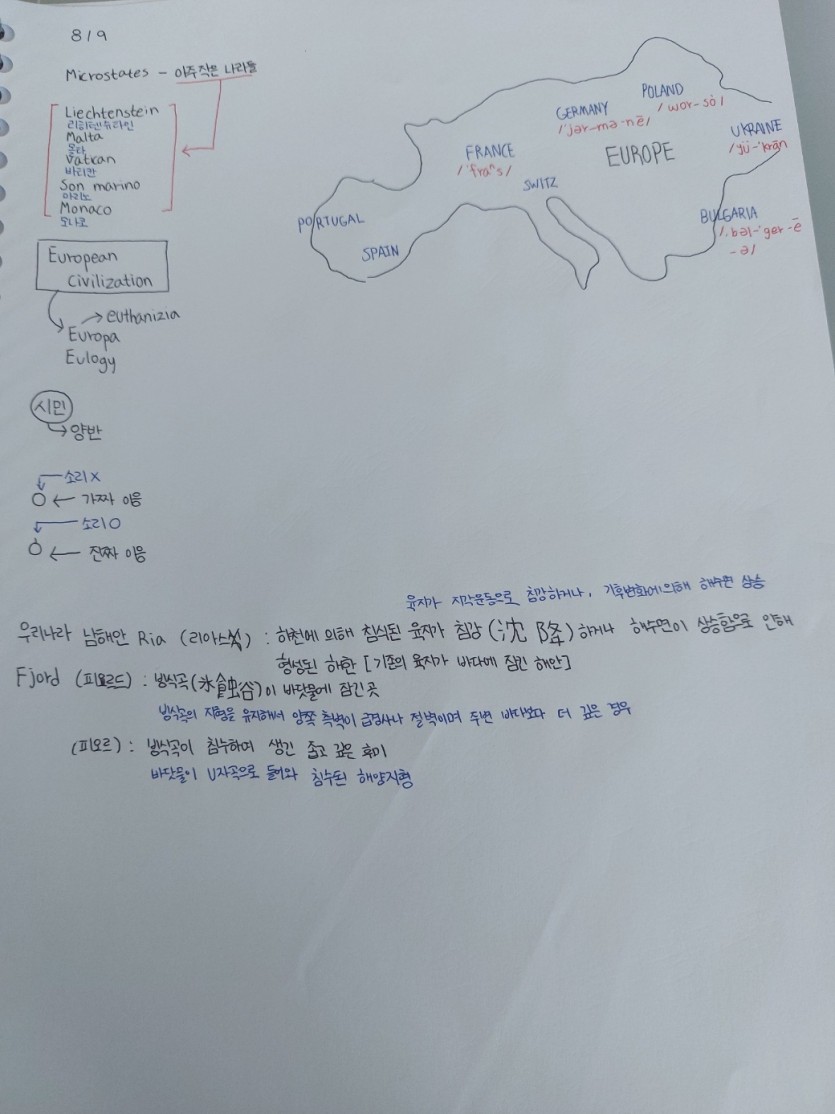 8/9
Microstates - 아주작은 나라들
Liechtenstein
리히텐슈타인
Malta
몰타
Vatican
바티칸
San marino
마리노
Monaco
모나코
European
Civilization
→ euthanizia
Europa
Eulogy
시민
→ 양반
소리 X
○ ← 가짜 이응
소리 O
← 진짜 이응
PORTUGAL
SPAIN
FRANCE
/ˈfraⁿs/
SWITZ
GERMANY
/ˈjər-mə-nē/
POLAND
/wor-so/
EUROPE
UKRAINE
/yü-ˈkrān
BULGARIA
/ˌbəl-ˈger-ē
-ə/
육지가 지각운동으로 침강하거나, 기후변화에 의해 해수면 상승
우리나라 남해안 Ria (리아스식) : 하천에 의해 침식된 육지가 침강(沈降)하거나 해수면이 상승함으로 인해
형성된 해안 [기존의 육지가 바다에 잠긴 해안]
Fjord (피요르드) : 빙식곡(氷蝕谷)이 바닷물에 잠긴 곳
빙식곡의 지형을 유지해서 양쪽 측벽이 급경사나 절벽이며 주변 바다보다 더 깊은 경우
(피오르) : 빙식곡이 침수하여 생긴 좁고 깊은 후미
바닷물이 U자곡으로 들어와 침수된 해양지형